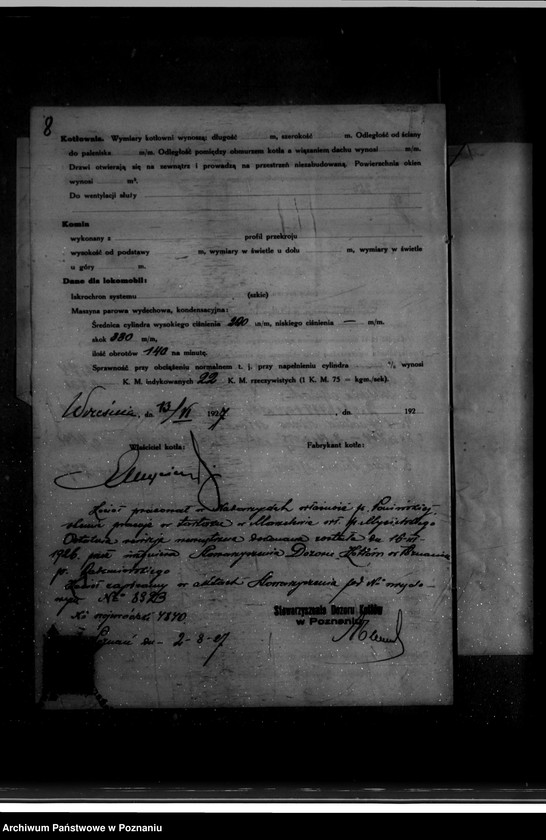 8
Kotłownia. Wymiary kotłowni wynoszą: długość m, szerokość m. Odległość od ściany
do paleniska m/m. Odległość pomiędzy obmurzem kotła a wiązaniem dachu wynosi m/m.
Drzwi otwierają się na zewnątrz i prowadzą na przestrzeń niezabudowaną. Powierzchnia okien
wynosi m².
Do wentylacji służy
Komin
wykonany z profil przekroju
wysokość od podstawy m, wymiary w świetle u dołu m, wymiary w świetle
u góry m.
Dane dla lokomobil:
Iskrochron systemu (szkic)
Maszyna parowa wydechowa, kondensacyjna:
Średnica cylindra wysokiego ciśnienia 200 m/m, niskiego ciśnienia — m/m.
skok 330 m/m,
ilość obrotów 140 na minutę.
Sprawność przy obciążeniu normalnem t. j. przy napełnieniu cylindra % wynosi
K. M. indykowanych 22 K. M. rzeczywistych (1 K. M. 75 — kgm./sek).
Września, dn. 13/VI 1927 , dn. 192
Właściciel kotła: Fabrykant kotła:
Kocioł pracował w własność p.
pracuje w w wł. p. Mycielskiego
Ostatnia rewizja wewnętrzna dokonana została dn 16
1926. przez inżyniera Stowarzyszenia Dozoru Kotłów w Poznaniu
p.
Kocioł zapisany w aktach Stowarzyszenia pod
No 3323
No 4840
Stowarzyszenie Dozoru Kotłów
w Poznaniu
Poznań dn - 2-8-27
Archiwum Państwowe w Poznaniu